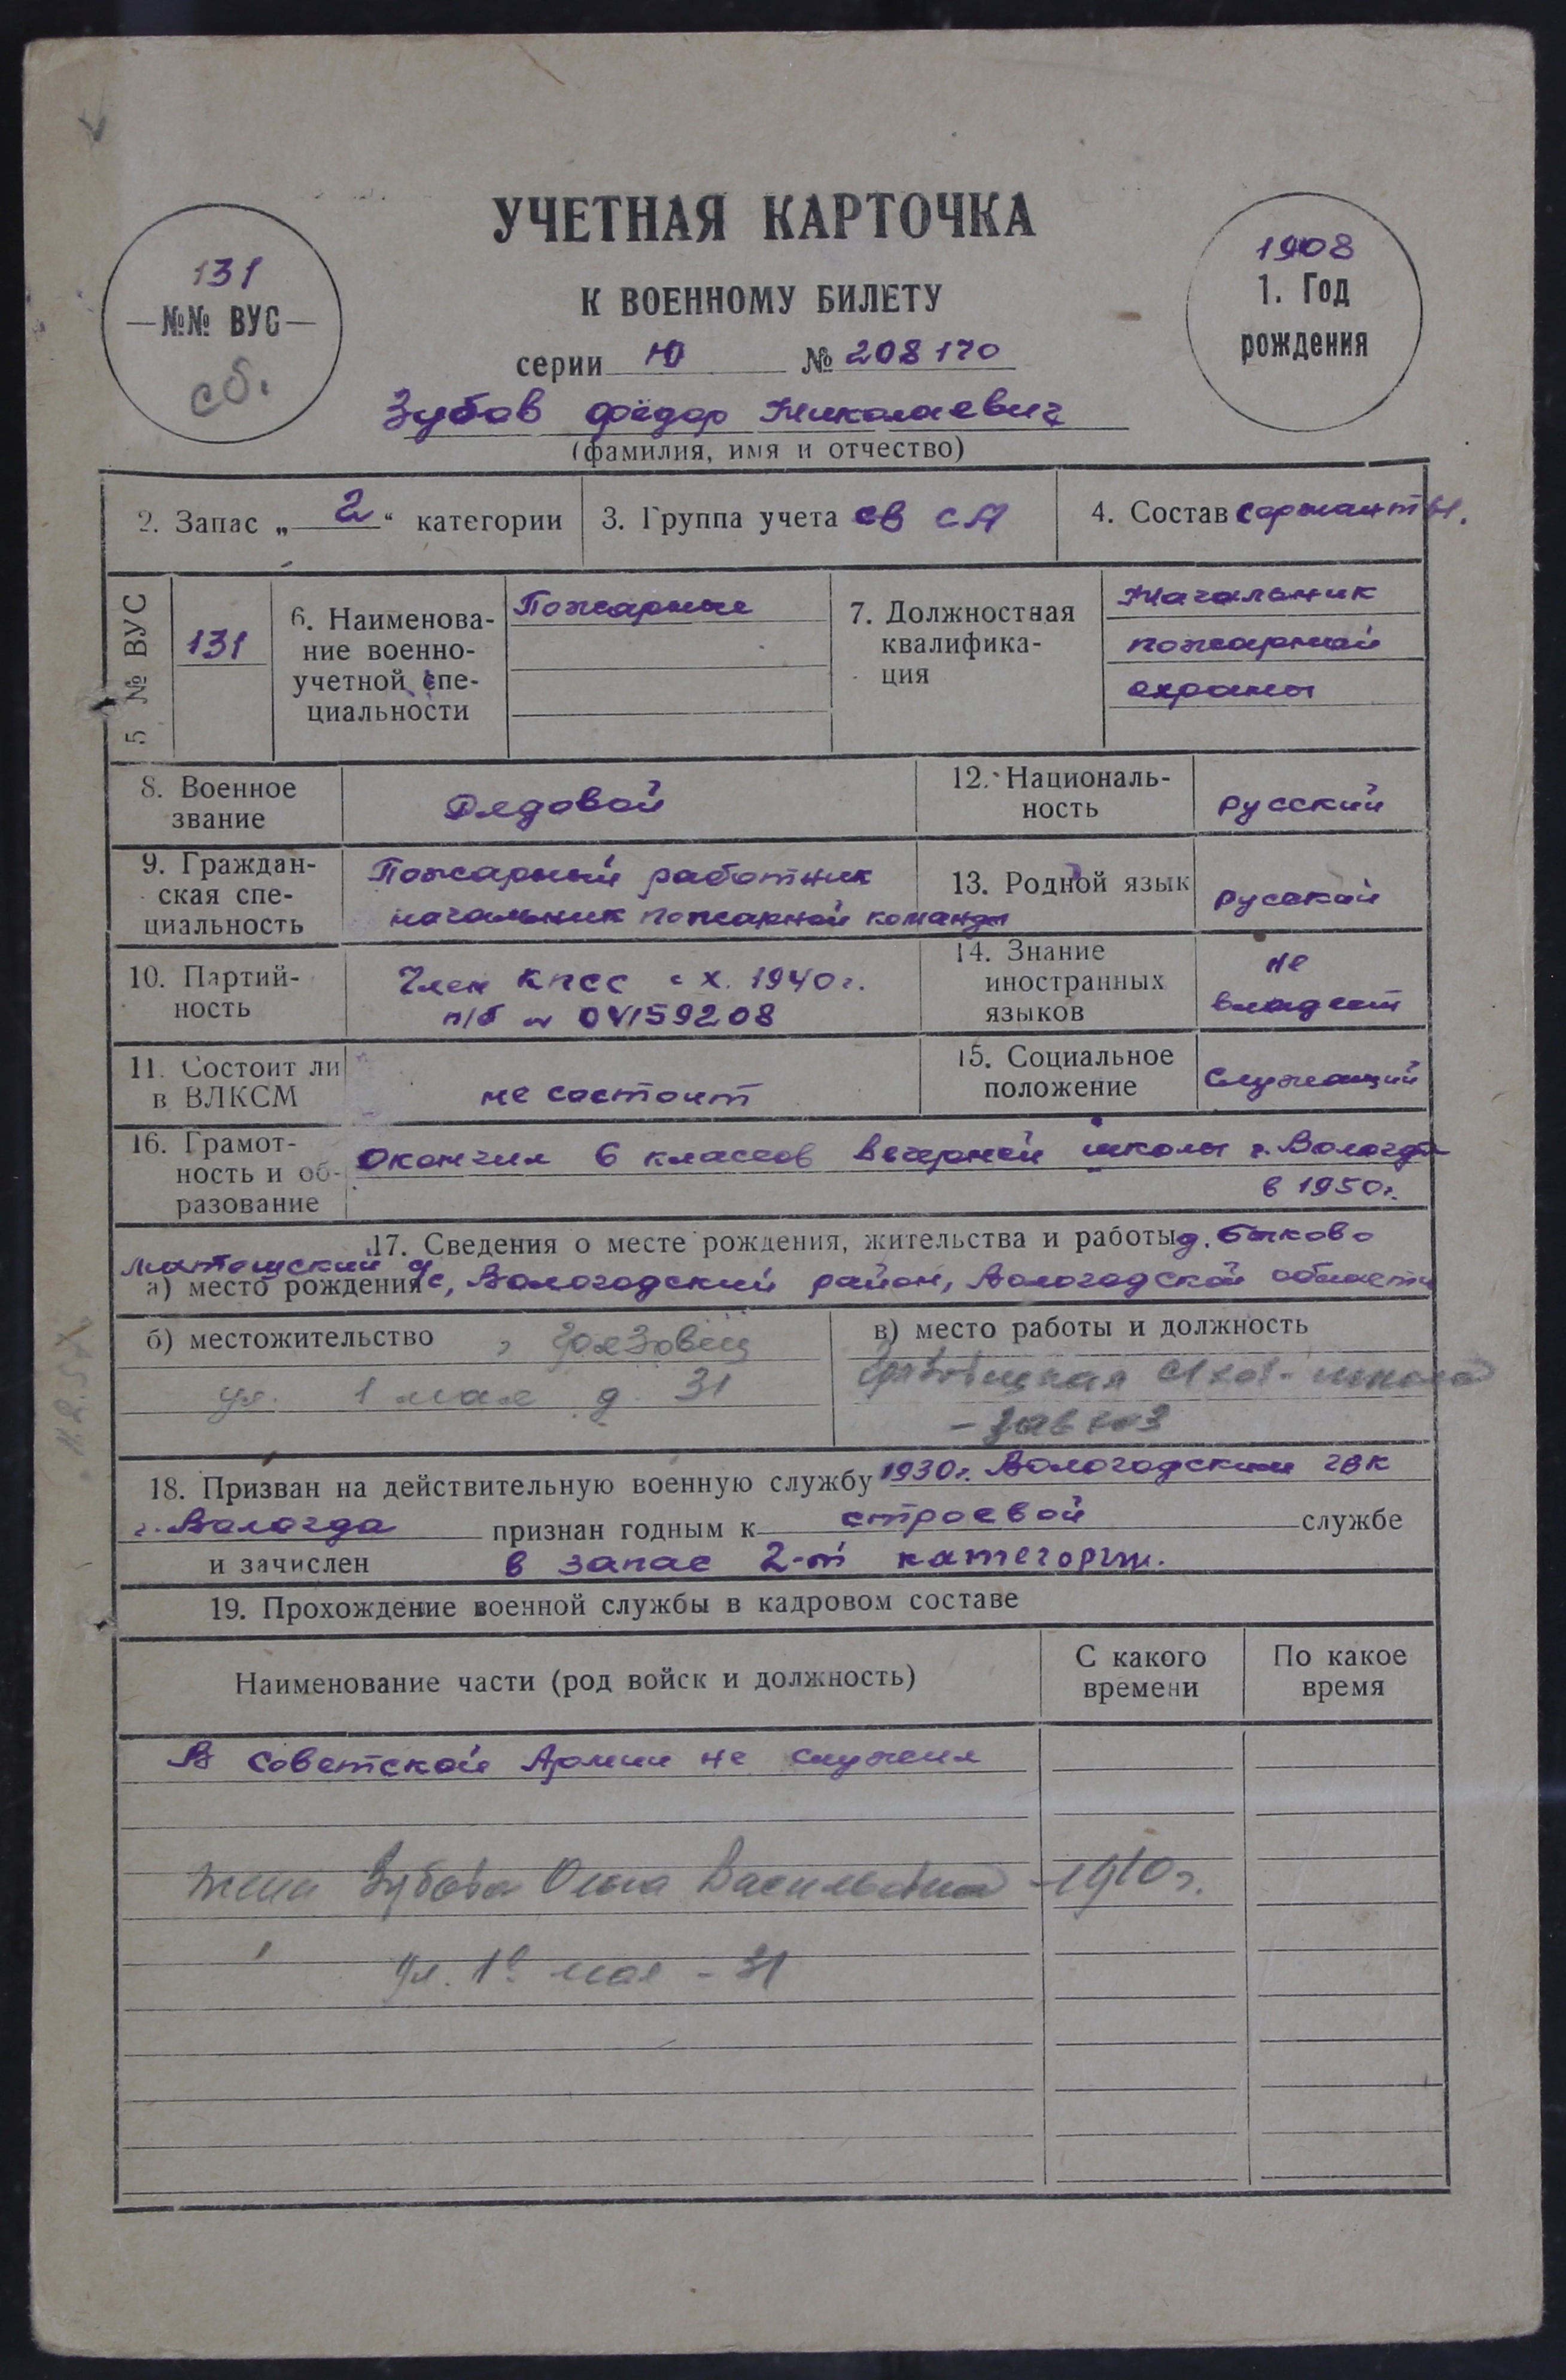 УЧЕТНАЯ КАРТОЧКА
К ВОЕННОМУ БИЛЕТУ
131
—№№ ВУС—
сб.
1908
1. Год
рождения
серии Ю № 208170
Зубов Фёдор Николаевич
(фамилия, имя и отчество)
2. Запас „ 2 “ категории
3. Группа учета СВ СА
4. Состав сержанты.
5 № ВУС
131
6. Наименова-
ние военно-
учетной спе-
циальности
Пожарные
7. Должностная
квалифика-
ция
Начальник
пожарной
охраны
8. Военное
звание
Рядовой
12. Националь-
ность
русский
9. Граждан-
ская спе-
циальность
Пожарный работник
начальник пожарной команды
13. Родной язык
русский
10. Партий-
ность
Член КПСС с X. 1940 г.
п/б № 04159208
14. Знание
иностранных
языков
не
владеет
11. Состоит ли
в ВЛКСМ
не состоит
15. Социальное
положение
Служащий
16. Грамот-
ность и об-
разование
Окончил 6 классов вечерней школы г. Вологда
в 1950 г.
17. Сведения о месте рождения, жительства и работы д. Быково
а) место рождения с/с, Вологодский район, Вологодской области
б) местожительство
ул. 1 мая д. 31
в) место работы и должность
школа
- завхоз
18. Призван на действительную военную службу 1930 г. Вологодским ГВК
г. Вологда признан годным к строевой службе
и зачислен в запас 2-й категории.
19. Прохождение военной службы в кадровом составе
Наименование части (род войск и должность)
С какого
времени
По какое
время
В Советской Армии не служил
жена Зубова Ольга Васильевна - 1910 г.
ул. 1е мая - 31